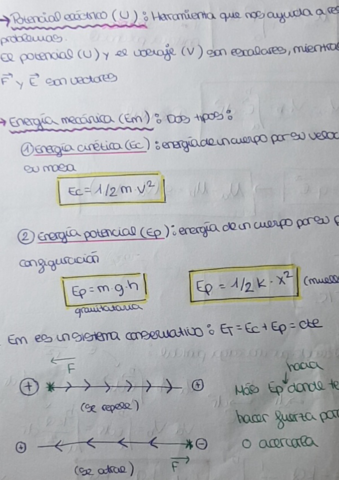 → Potencial eléctrico (U): Herramienta que nos ayuda a
problemas
El potencial (U) y el voltaje (V) son escalares, mientras
F⃗ y E⃗ son vectores
→ Energía mecánica (Em): Dos tipos:
① Energía cinética (Ec): energía de un cuerpo por su
su masa
Ec = 1/2 m v²
② Energía potencial (Ep): energía de un cuerpo por su
configuración
Ep = m·g·h
gravitatoria
Ep = 1/2 K · x²
Em es un sistema conservativo: ET = Ec + Ep = cte
F
+ +
(se repele)
- 
(se atrae) F
hacia
Más Ep donde
hacer fuerza
o acercarla